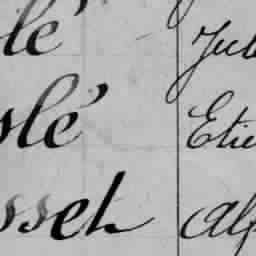 lé Jul
slé Etie
sset Alf